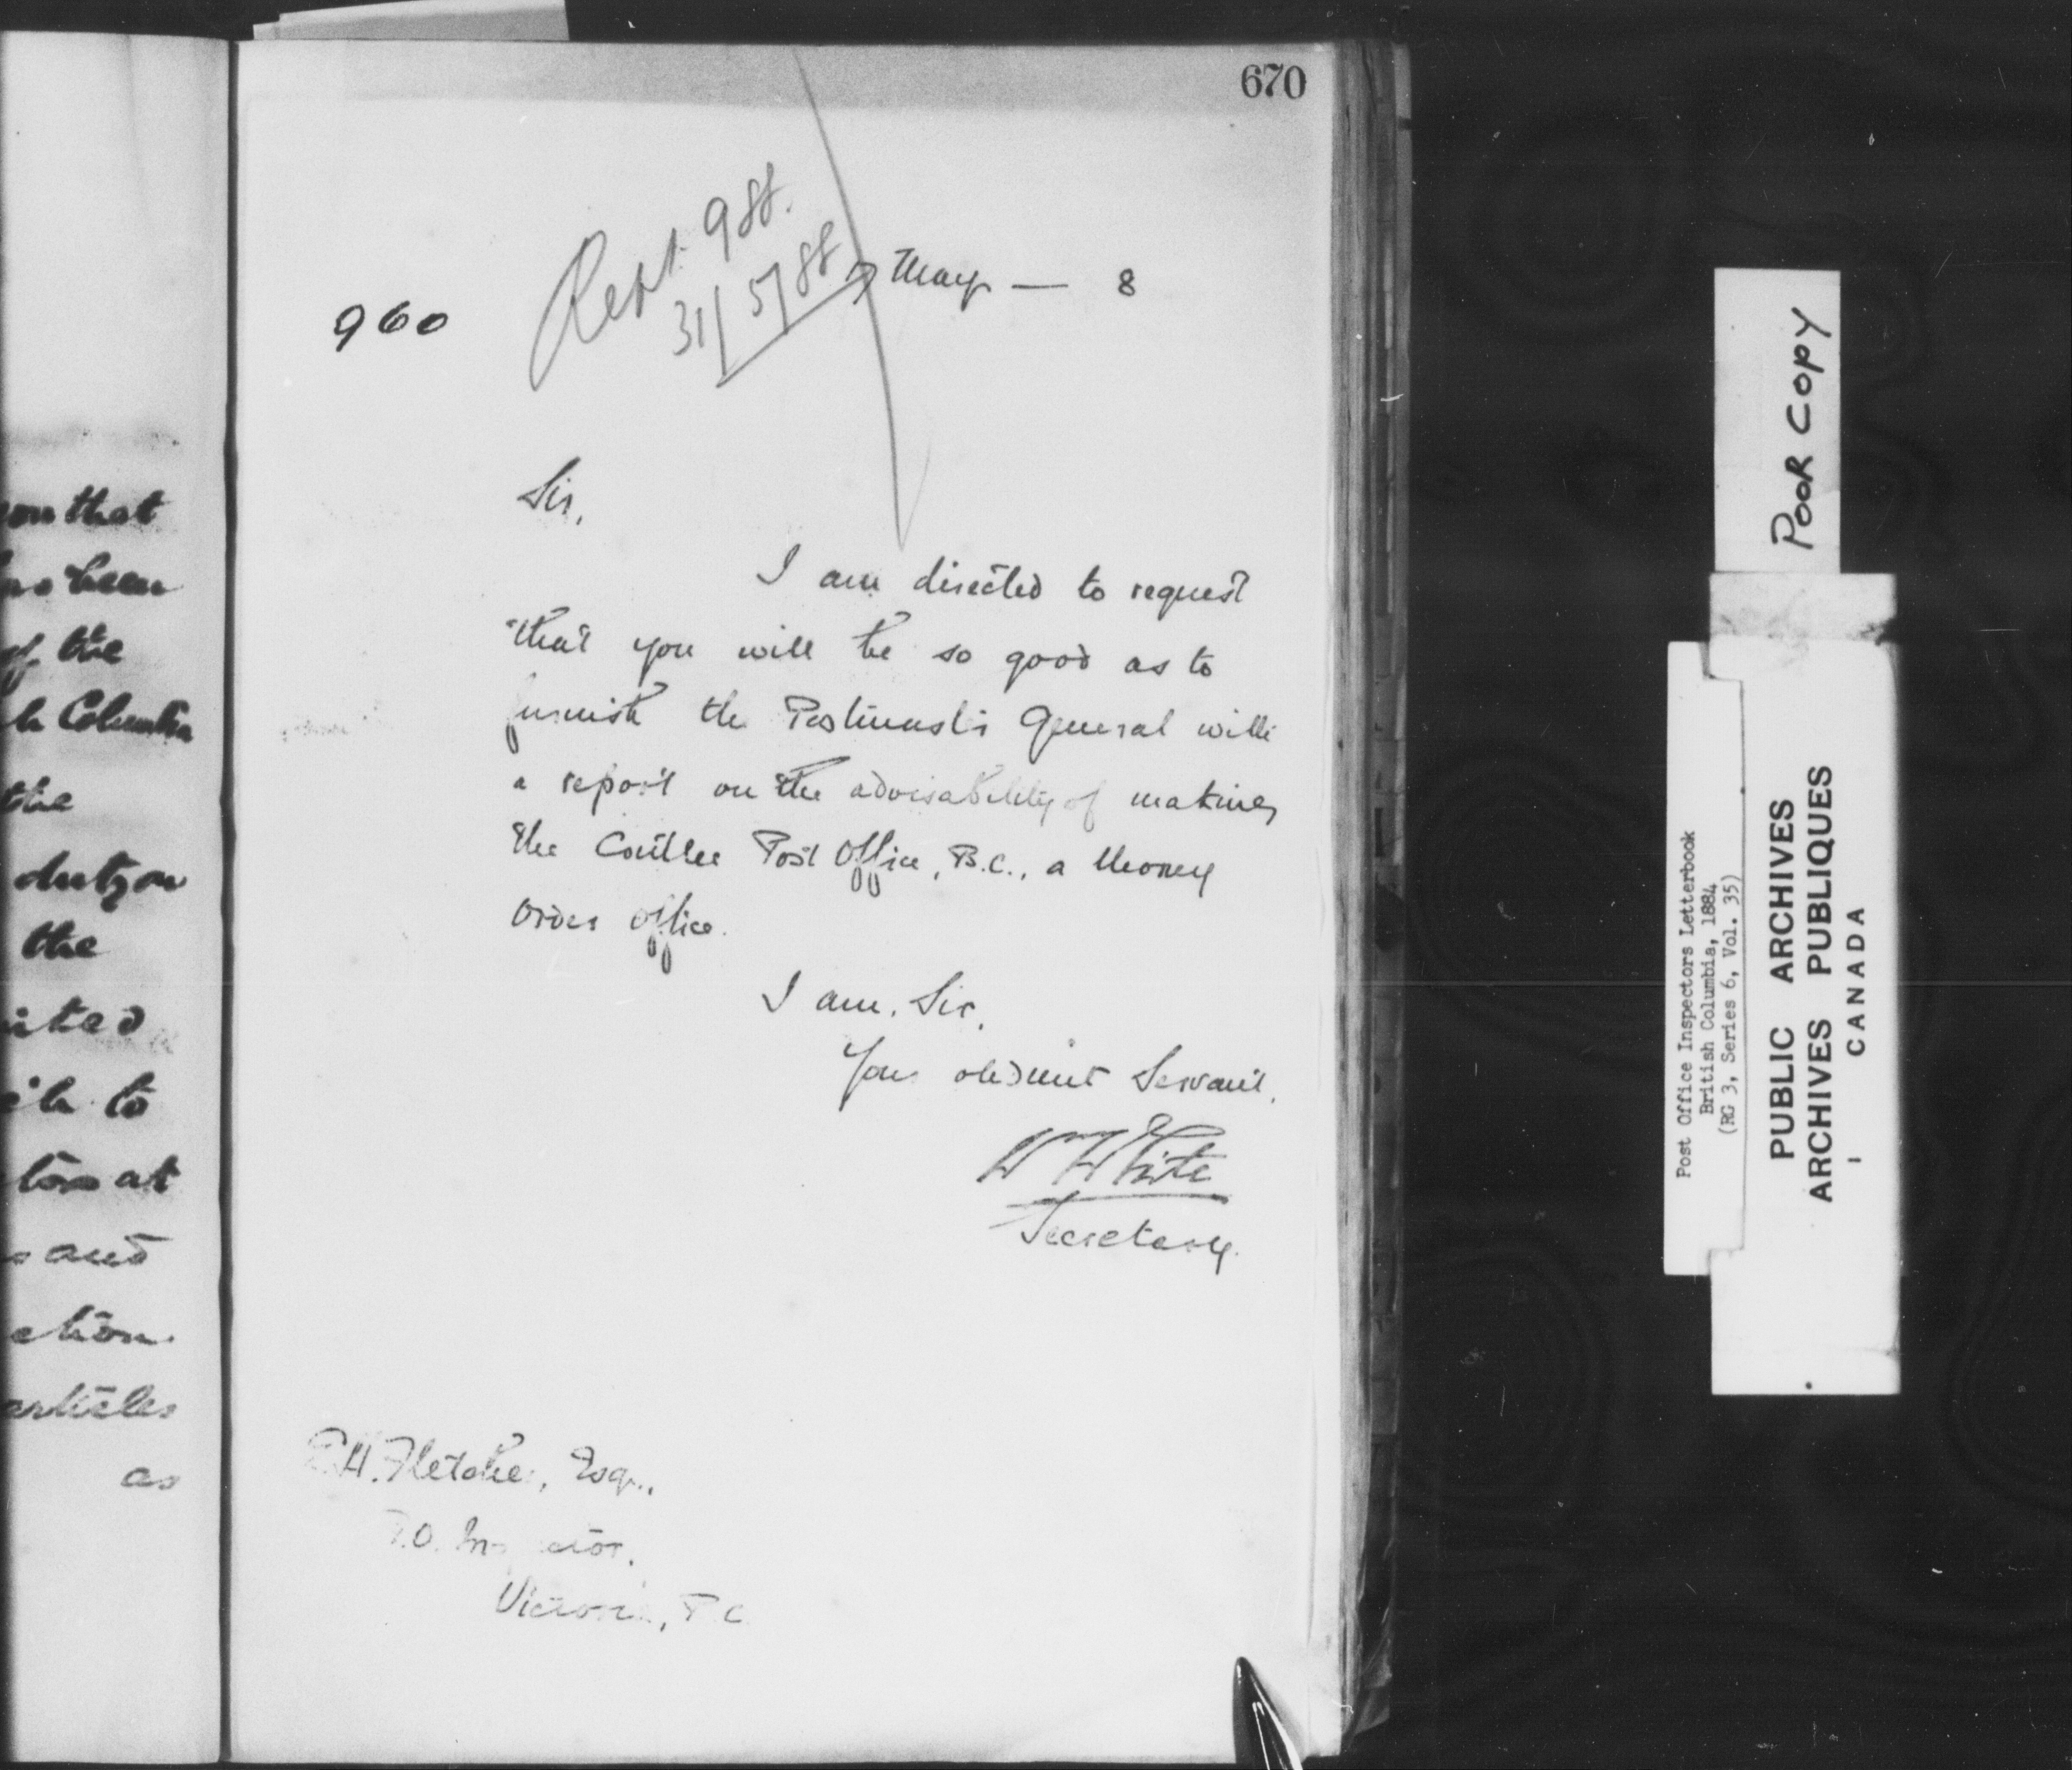 on that
been
of the
Columbia
the
duty on
the
to
at
and
articles
as
670
Rept. 988.
31/5/88
7 May — 8
960
Sir,
I am directed to request
that you will be so good as to
furnish the Postmaster General with
a report on the advisability of making
the Coutlee Post Office, B.C., a Money
Order Office.
I am, Sir,
Your obedient Servant,
Wm White
Secretary.
E.H. Fletcher, Esq.,
P.O. Inspector,
Victoria, B.C.
POOR COPY
Post Office Inspectors Letterbook
British Columbia, 1884
(RG 3, Series 6, Vol. 35)
PUBLIC ARCHIVES
ARCHIVES PUBLIQUES
CANADA